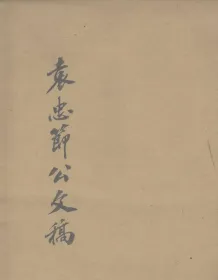 袁忠節公文稿